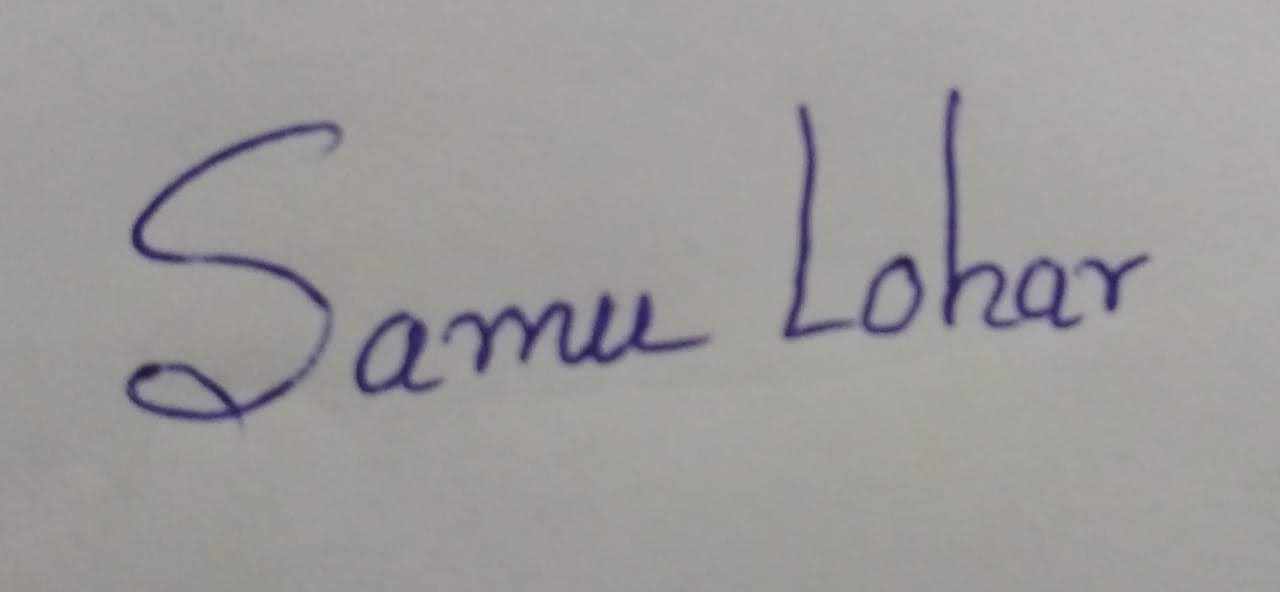 Samu Lohar